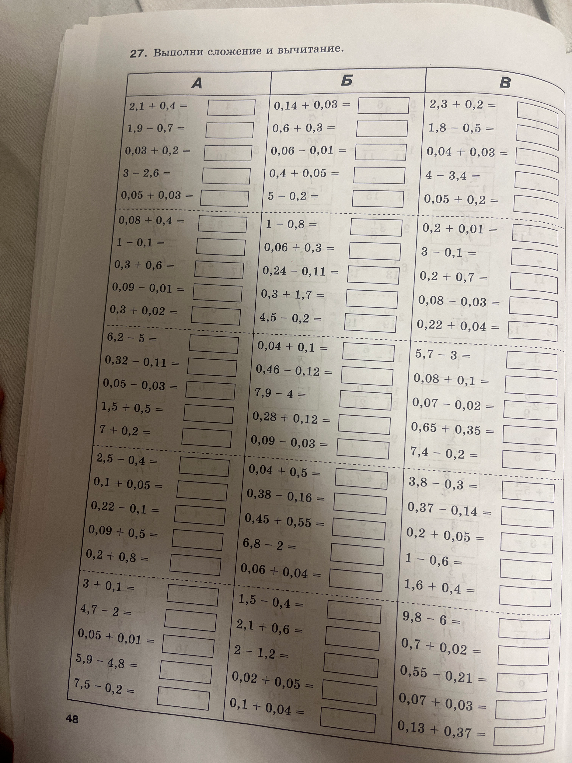 27. Выполни сложение и вычитание.
А
2,1 + 0,4 =
1,9 − 0,7 =
0,03 + 0,2 =
3 − 2,6 =
0,05 + 0,03 =
0,08 + 0,4 =
1 − 0,1 =
0,3 + 0,6 =
0,09 − 0,01 =
0,3 + 0,02 =
6,2 − 5 =
0,32 − 0,11 =
0,05 − 0,03 =
1,5 + 0,5 =
7 + 0,2 =
2,5 − 0,4 =
0,1 + 0,05 =
0,22 − 0,1 =
0,09 + 0,5 =
0,2 + 0,8 =
3 + 0,1 =
4,7 − 2 =
0,05 + 0,01 =
5,9 − 4,8 =
7,5 − 0,2 =
Б
0,14 + 0,03 =
0,6 + 0,3 =
0,06 − 0,01 =
0,4 + 0,05 =
5 − 0,2 =
1 − 0,8 =
0,06 + 0,3 =
0,24 − 0,11 =
0,3 + 1,7 =
4,5 − 0,2 =
0,04 + 0,1 =
0,46 − 0,12 =
7,9 − 4 =
0,28 + 0,12 =
0,09 − 0,03 =
0,04 + 0,5 =
0,38 − 0,16 =
0,45 + 0,55 =
6,8 − 2 =
0,06 + 0,04 =
1,5 − 0,4 =
2,1 + 0,6 =
2 − 1,2 =
0,02 + 0,05 =
0,1 + 0,04 =
В
2,3 + 0,2 =
1,8 − 0,5 =
0,04 + 0,03 =
4 − 3,4 =
0,05 + 0,2 =
0,2 + 0,01 =
3 − 0,1 =
0,2 + 0,7 =
0,08 − 0,03 =
0,22 + 0,04 =
5,7 − 3 =
0,08 + 0,1 =
0,07 − 0,02 =
0,65 + 0,35 =
7,4 − 0,2 =
3,8 − 0,3 =
0,37 − 0,14 =
0,2 + 0,05 =
1 − 0,6 =
1,6 + 0,4 =
9,8 − 6 =
0,7 + 0,02 =
0,55 − 0,21 =
0,07 + 0,03 =
0,13 + 0,37 =
48